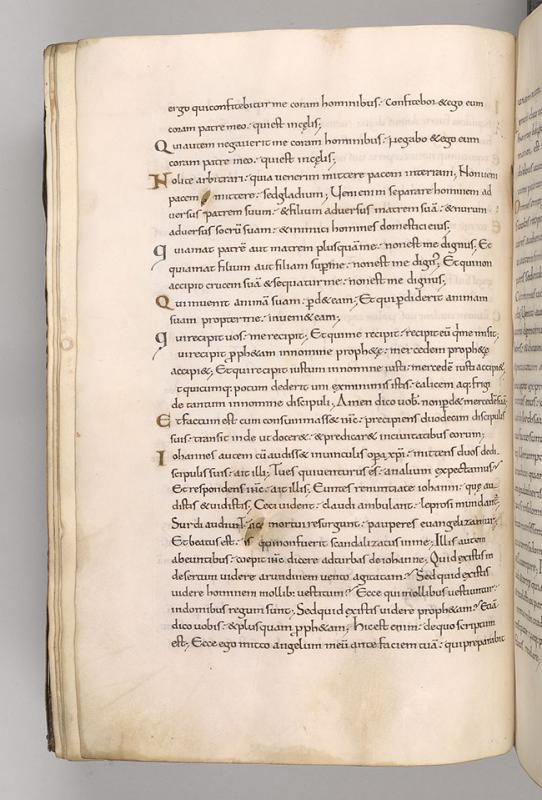 ergo qui confitebitur me coram hominibus: confitebor & ego eum
coram patre meo: qui est in celis;
Qui autem negaverit me coram hominibus: negabo & ego eum
coram patre meo: qui est in celis;
Nolite arbitrari: quia venerim mittere pacem in terram; Non veni
pacem mittere: sed gladium; Veni enim separare hominem ad
versus patrem suum: & filiam adversus matrem suā: & nurum
adversus socrū suam: & inimici hominis domestici eius;
qui amat patrē aut matrem plus quā me: non est me dignus; Et
qui amat filium aut filiam sup me: non est me dign; Et qui non
accipit crucem suā & sequitur me: non est me dignus;
Qui invenit animā suam: pd& eam; Et qui pdiderit animam
suam propter me: inveni& eam;
qui recipit vos: me recipit; Et qui me recipit: recipit eū q me misit;
qui recipit pph&am in nomine proph&e: mercedem proph&e
accipi&; Et qui recipit iustum in nomine iusti: mercedē iusti accipi&;
Et quicumq; potum dederit uni ex minimis istis: calicem aq; frigi
de tantum in nomine discipuli; Amen dico vob: non pd& mercedē suā;
Et factum est cum consummass& ihc: precipiens duodecim discipulis
suis: transiit inde ut docer& & predicar& in civitatibus eorum;
Iohannes autem cū audiss& in vinculis opa xpi: mittens duos de di
scipulis suis: ait illi; Tu es qui venturus es: an alium expectamus
Et respondens ihc: ait illis; Euntes renuntiate iohanni: que au
distis & vidistis; Ceci vident: claudi ambulant: leprosi mundant;
Surdi audiunt: mortui resurgunt: pauperes evangelizantur;
Et beatus est: qui non fuerit scandalizatus in me; Illis autem
abeuntibus: coepit ihc dicere ad turbas de iohanne; Quid existis in
desertum videre arundinem vento agitatam; Sed quid existis
videre hominem mollib; vestitum; Ecce qui mollibus vestiuntur:
in domibus regum sunt; Sed quid existis videre proph&am;
dico vobis: & plus quam pph&am; Hic est enim: de quo scriptum
est; Ecce ego mitto angelum meū ante faciem tuā: qui preparabit